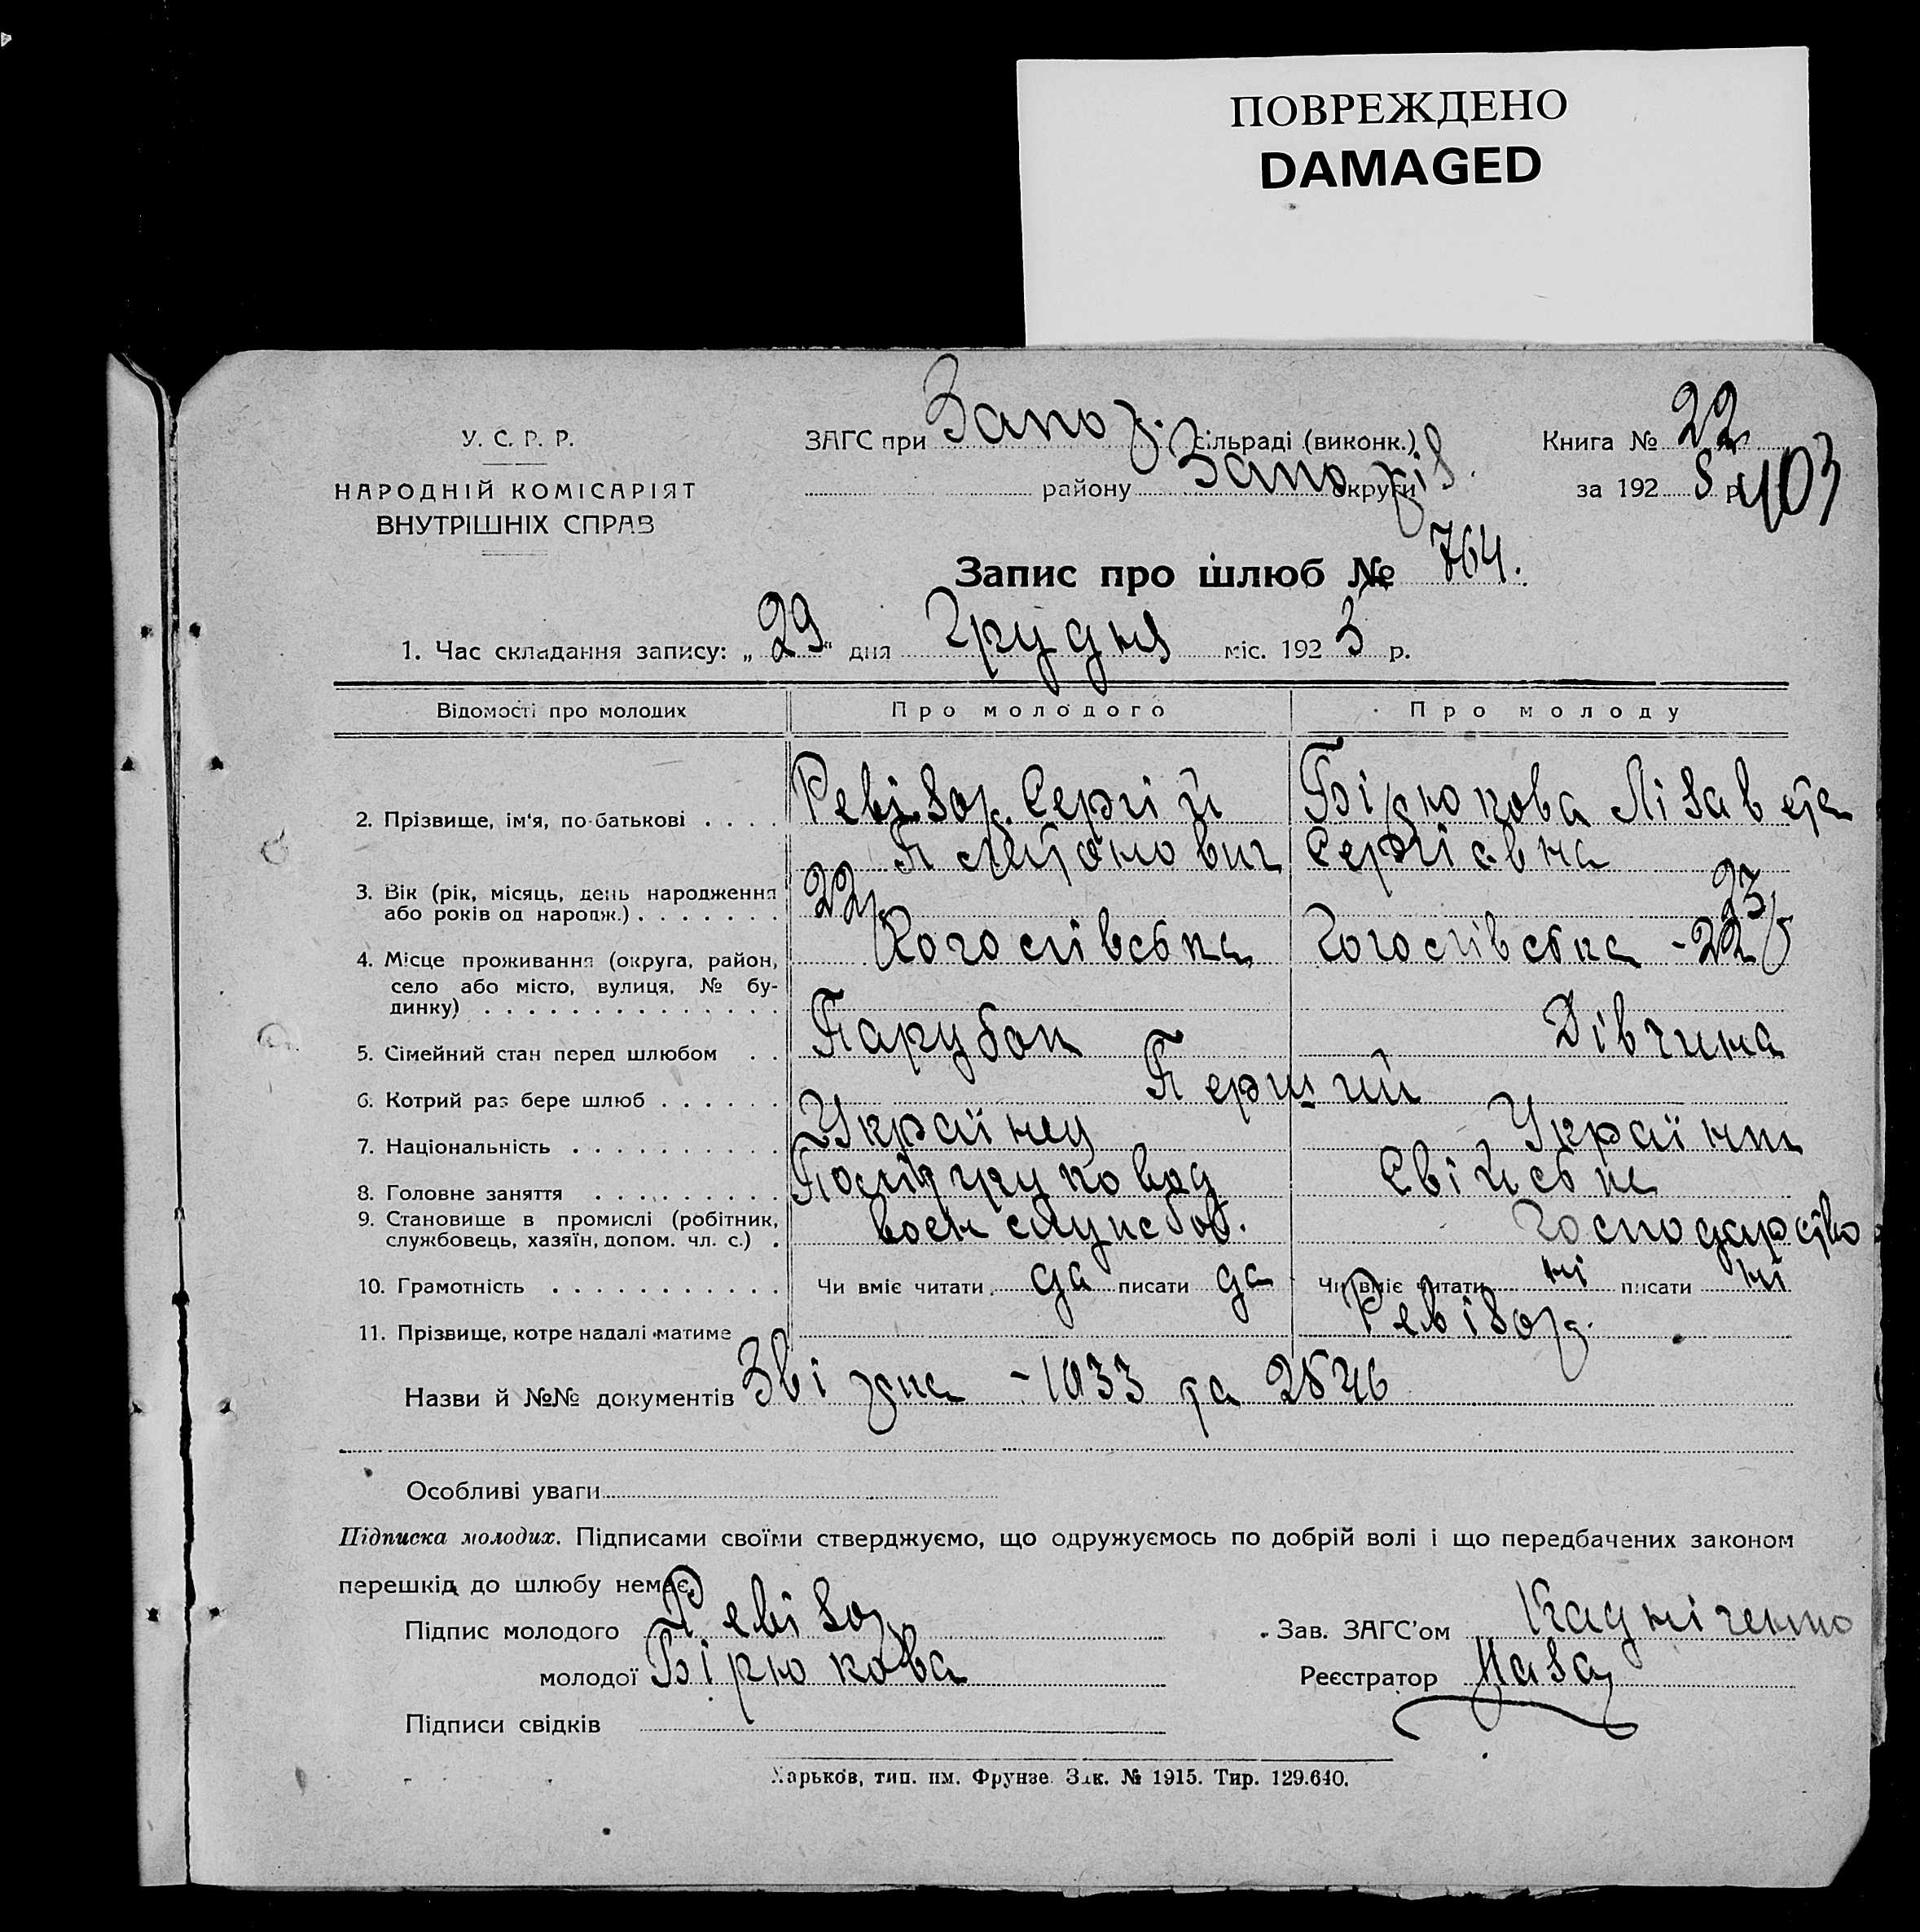 ПОВРЕЖДЕНО
DAMAGED
У. С. Р. Р.
НАРОДНІЙ КОМІСАРІЯТ
ВНУТРІШНІХ СПРАВ
ЗАГС при Запор. сільраді (виконк.)
району Запоріз. округи
Книга № 22
за 1928 р. 403
Запис про шлюб № 764.
1. Час складання запису: „29" дня Грудня міс. 192 р.
Відомості про молодих Про молодого Про молоду
2. Прізвище, ім'я, по-батькові . . . . Ревізор Сергій Бірюкова Лізавета
Сергієвна
3. Вік (рік, місяць, день народження 22 23
або років од народж.) . . . . . . .
4. Місце проживання (округа, район,
село або місто, вулиця, № бу-
динку) . . . . . . . . . . . . . .
5. Сімейний стан перед шлюбом . . Парубок Дівчина
6. Котрий раз бере шлюб . . . . . . Перший
7. Національність . . . . . . . . . Українец Українк
8. Головне заняття . . . . . . . . . Свійське
9. Становище в промислі (робітник,
службовець, хазяїн, допом. чл. с.) . воен служебов. Господарство
10. Грамотність . . . . . . . . . . . Чи вміє читати да писати да Чи вміє читати ні писати ні
11. Прізвище, котре надалі матиме Ревізор
Назви й №№ документів -1033 та 2846
Особливі уваги
Підписка молодих. Підписами своїми стверджуємо, що одружуємось по добрій волі і що передбачених законом
перешкід до шлюбу немає.
Підпис молодого Ревізор Зав. ЗАГС'ом
молодої Бірюкова Реєстратор
Підписи свідків
Харьков, тип. им. Фрунзе. Зак. № 1915. Тир. 129.640.